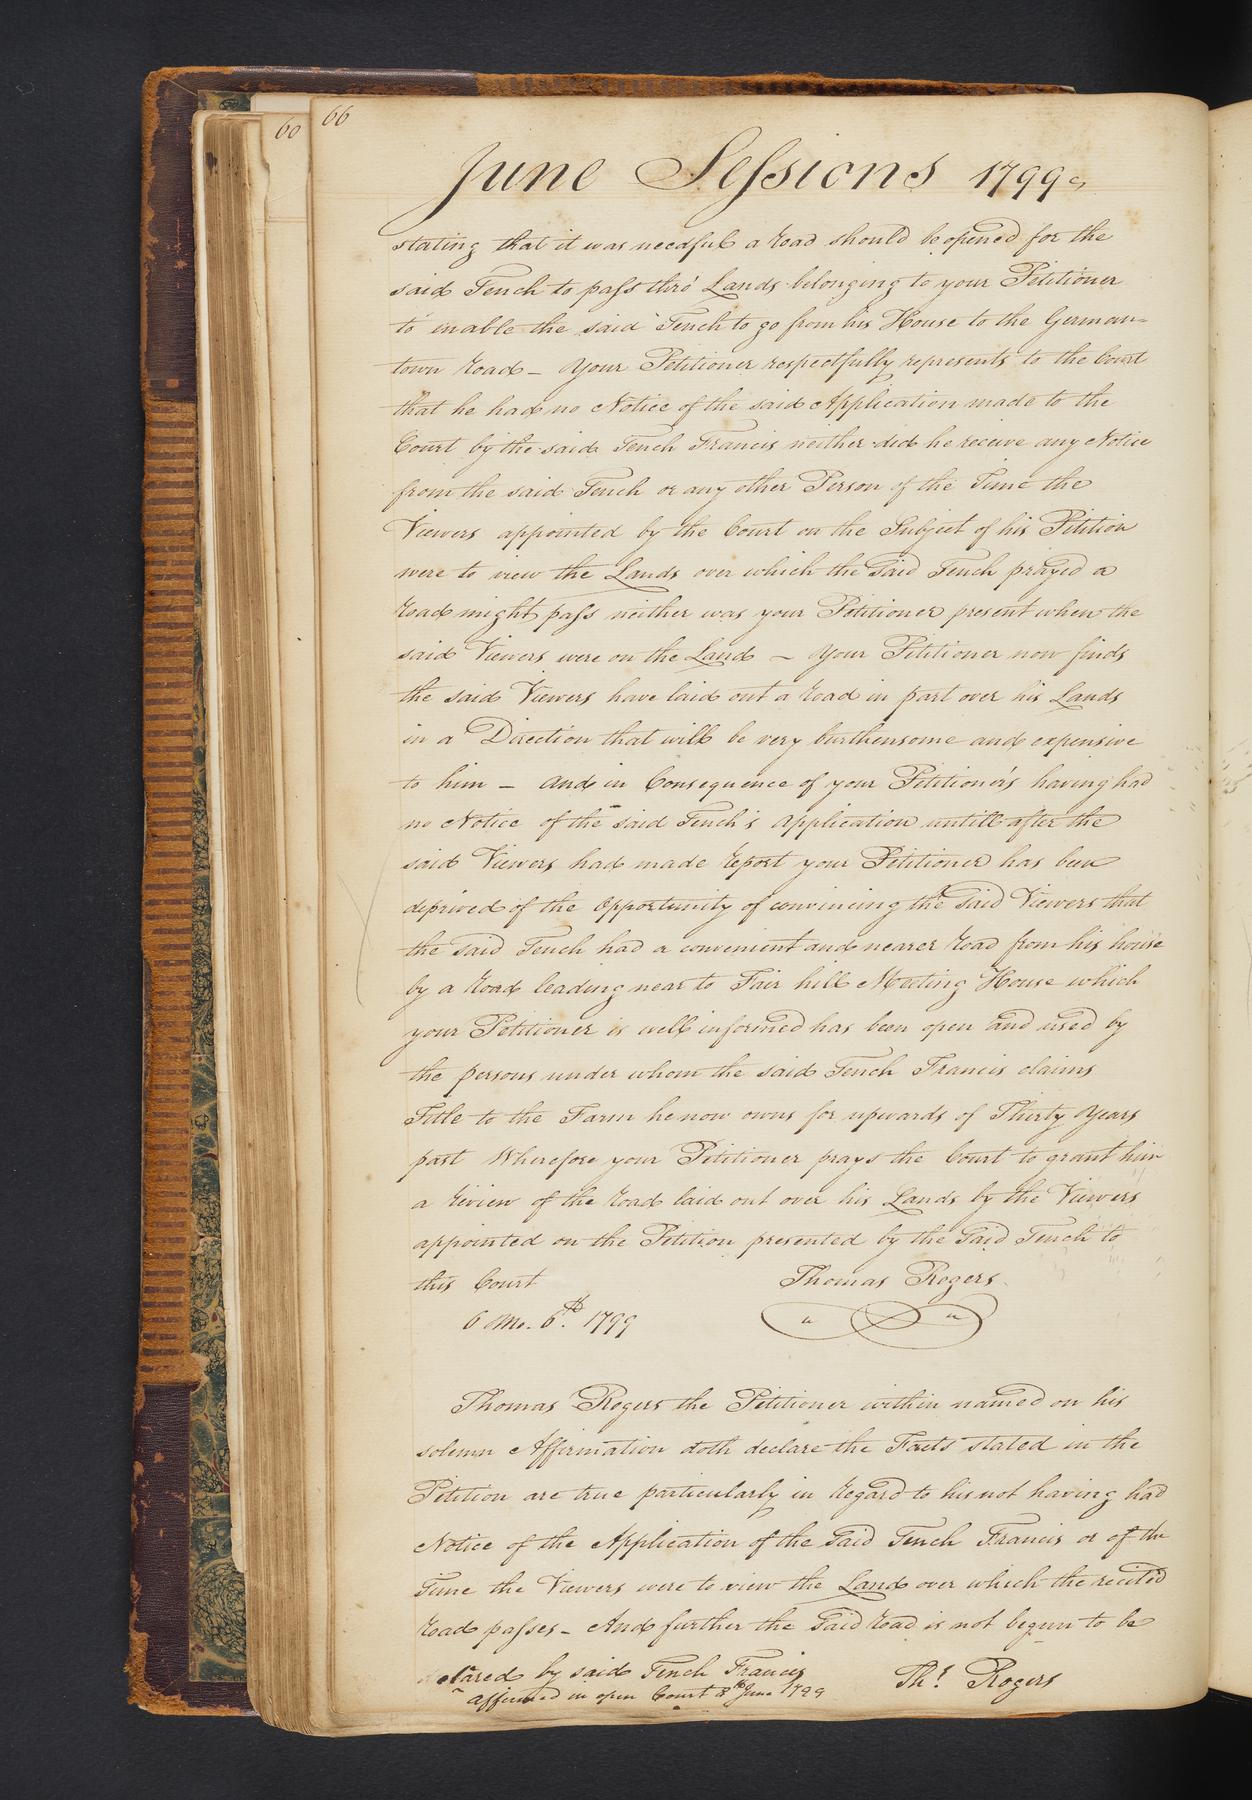 60
66
June Sessions 1799
stating that it was needful a Road should be opened for the
said Tench to pass thro' Lands belonging to your Petitioner
to enable the said Tench to go from his House to the German=
town Road – Your Petitioner respectfully represents to the Court
that he had no Notice of the said Application made to the
Court by the said Tench Francis neither did he receive any Notice
from the said Tench or any other Person of the Time the
Viewers appointed by the Court on the Subject of his Petition
were to view the Lands over which the Said Tench prayed a
Road might pass neither was your Petitioner present when the
said Viewers were on the Land – Your Petitioner now finds
the said Viewers have laid out a Road in part over his Lands
in a Direction that will be very burthensome and expensive
to him – and in Consequence of your Petitioner's having had
no Notice of the said Tench's Application untill after the
said Viewers had made Report your Petitioner has been
deprived of the Opportunity of convincing the Said Viewers that
the Said Tench had a convenient and nearer Road from his house
by a Road leading near to Fair hill Meeting House which
your Petitioner is well informed has been open and used by
the persons under whom the said Tench Francis claims
Title to the Farm he now owns for upwards of Thirty Years
past Wherefore your Petitioner prays the Court to grant him
a Review of the Road laid out over his Lands by the Viewers
appointed on the Petition presented by the Said Tench to
this Court Thomas Rogers
6 Mo. 6th. 1799
Thomas Rogers the Petitioner within named on his
solemn Affirmation doth declare the Facts stated in the
Petition are true particularly in Regard to his not having had
Notice of the Application of the Said Tench Francis or of the
Time the Viewers were to view the Land over which the recited
Road passes – And further the Said Road is not begun to be
cleared by said Tench Francis Thos. Rogers
affirmed in open Court 8th June 1799